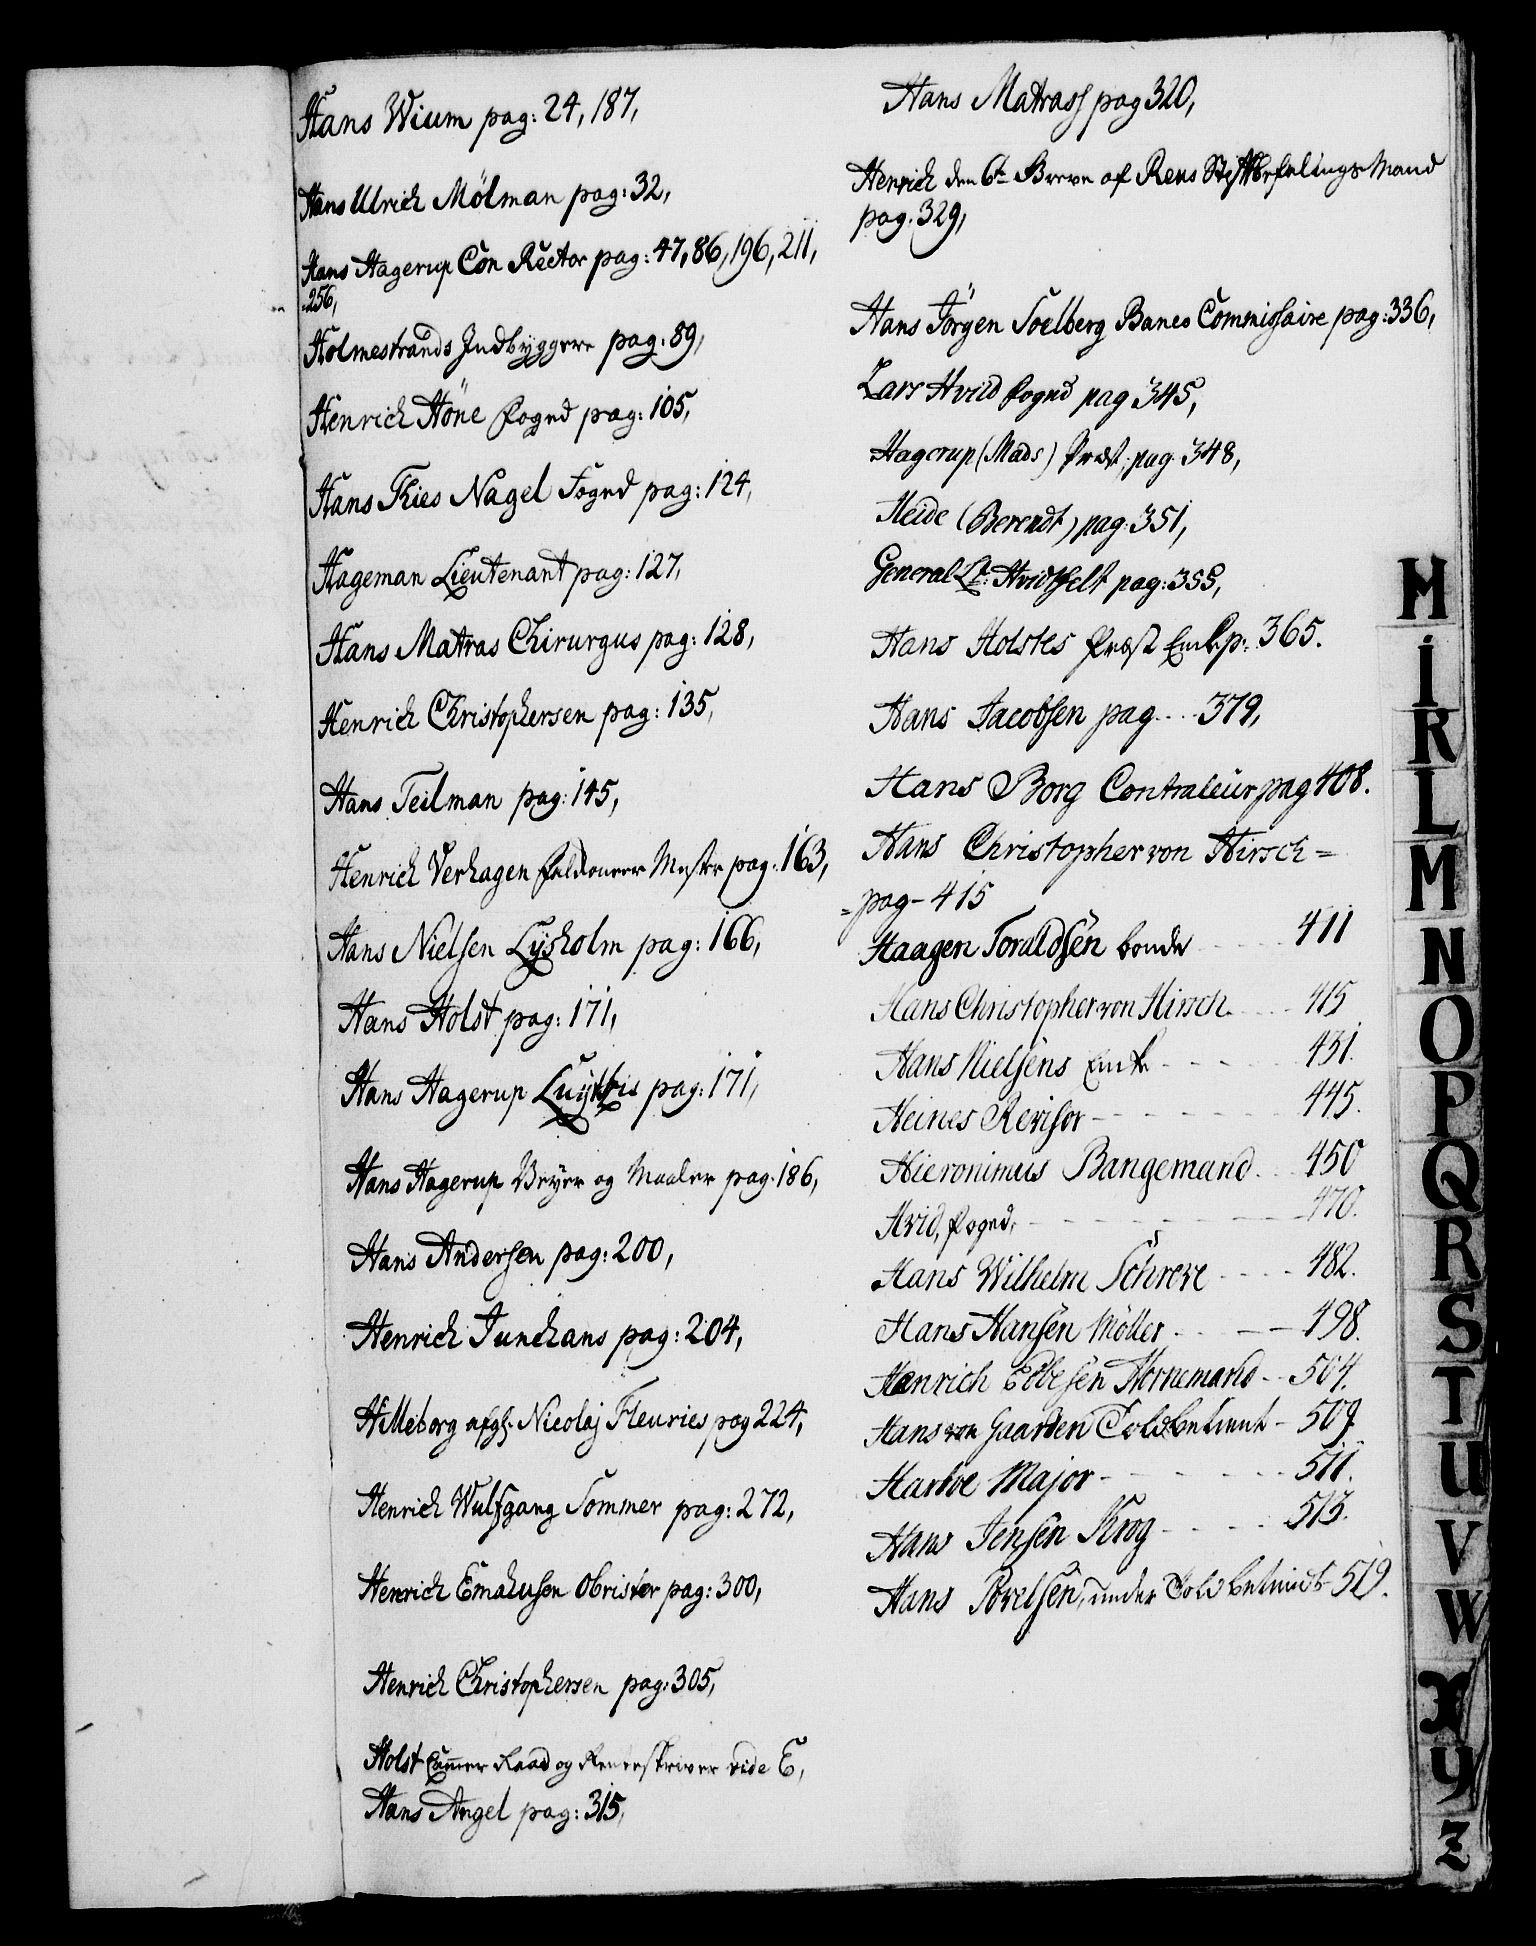 Hans Wium pag: 24, 187,
Hans Ulrich Mölman pag: 32,
Hans Hagerup Con Rector pag: 47, 86, 196, 211,
256,
Holmestrands Indbyggere pag: 89,
Henrich Höne Foged pag: 105,
Hans Thies Nagel Foged pag: 124,
Hageman Lieutenant pag: 127,
Hans Matras Chirurgus pag: 128,
Henrich Christophersen pag: 135,
Hans Teilman pag: 145,
Henrich Verhagen pag: 163,
Hans Nielsen Lysholm pag: 166,
Hans Holst pag: 171,
Hans Hagerup pag: 171,
Hans Hagerup Veyer og Maaler pag: 186,
Hans Andersen pag: 200,
Henrich Junchans pag: 204,
Hilleborg afgl. Nicolaj Fleuries pag 224,
Henrich Wulfgang Sommer pag: 272,
Henrich Emahusen Obrister pag: 300,
Henrich Christophersen pag: 305,
Holst Cammer Raad og Renteskriver vide E,
Hans Angel pag: 315,
Hans Matrass pag 320,
Henrich den 6te Brevve af Reus Stiftbefalings Mand
pag: 329,
Hans Jörgen Soelberg Banco Commissaire pag: 336,
Lars Hvid Foged pag 345,
Hagerup (Mads) Præst, pag 348,
Heide (Berendt) pag: 351,
General Lt: Hvidtfelt pag: 355,
Hans Holstes Præst Enke p: 365.
Hans Jacobsen pag.... 379,
Hans Borg Contraleur pag 408.
Hans Christopher von Hirsch =
= pag - 415
Haagen Toraldsen bonde 411
Hans Christopher von Hirsch 415
Hans Nielsens Enke 431.
Heines Revisor 445.
Hieronimus Bangemand 450
Hvid, Foged, 470.
Hans Wilhelm Schreve 482.
Hans Hansen Möller 498.
Henrich Ebbesen Hornemand 504.
Hans von Gaarden Toldbetient 509
Hartvє Major 511.
Hans Jensen Krog 513.
Hans Povelsen, under Toldbetient 519.
H
I
K
L
M
N
O
P
Q
R
S
T
U
V
W
X
Y
Z